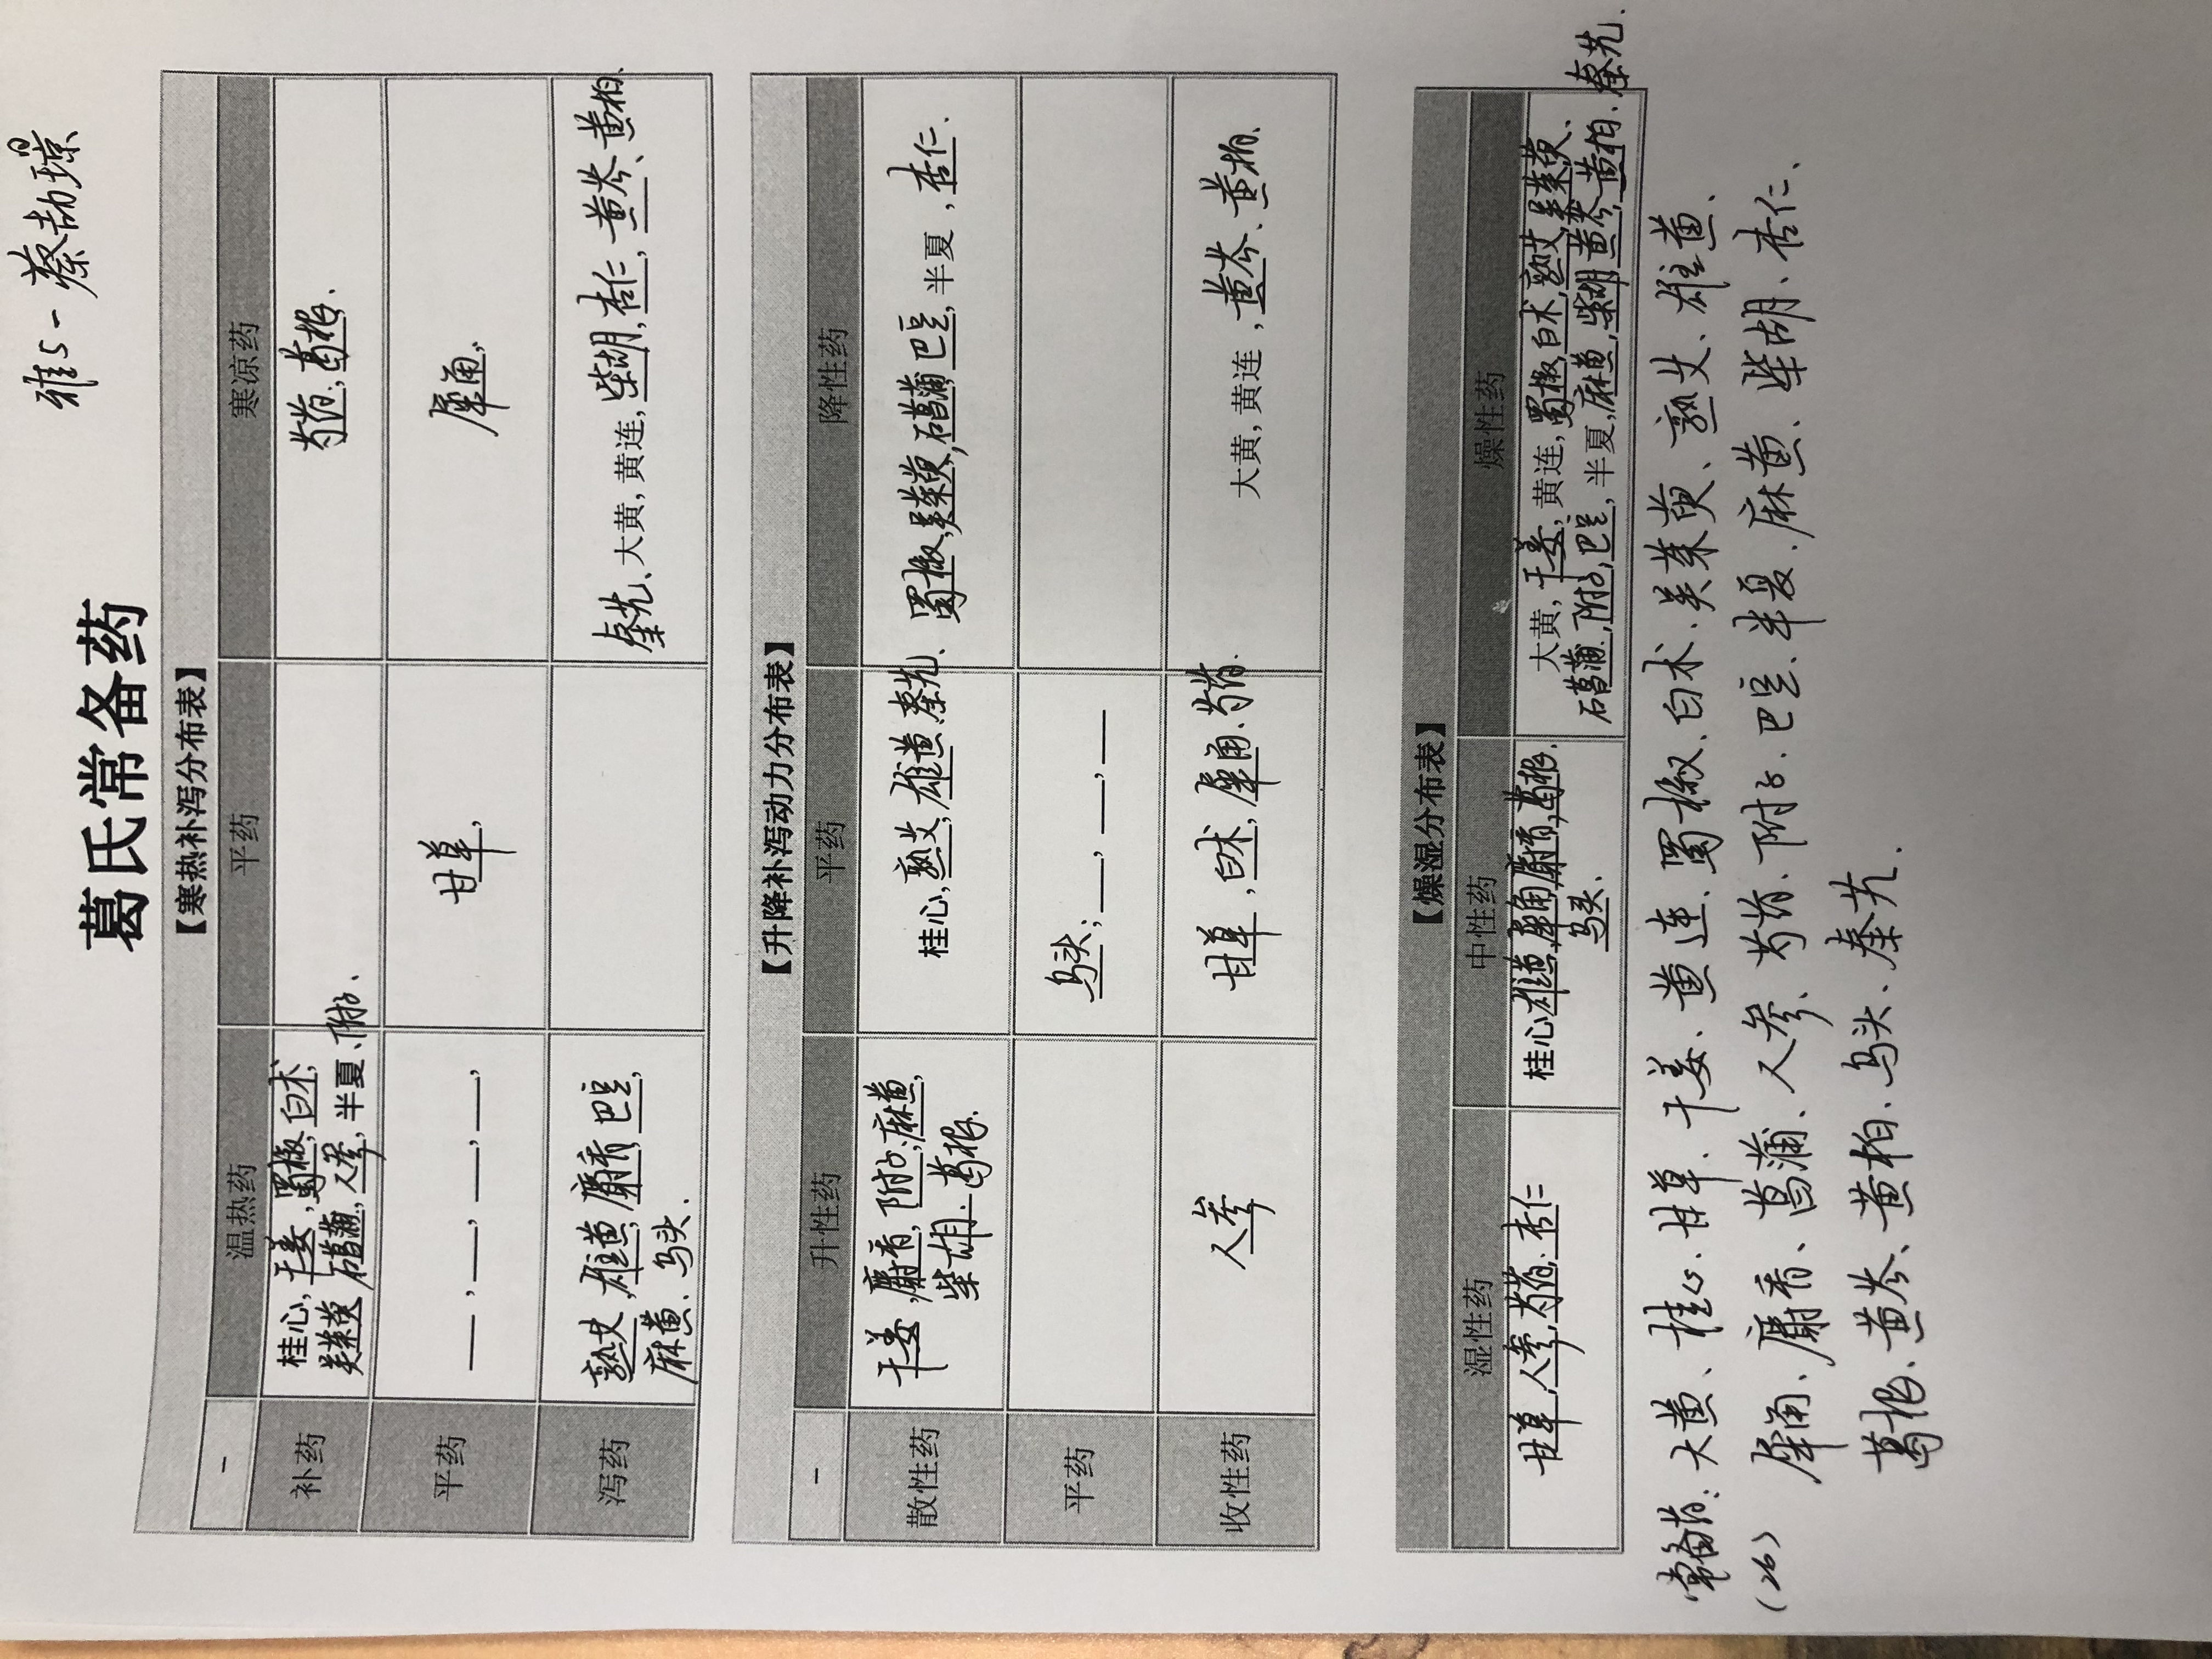 雅5-蔡劼琼
葛氏常备药
【寒热补泻分布表】
- 温热药 平药 寒凉药
补药 桂心,干姜,蜀椒,白术, 芍药,葛根,
吴茱萸 石菖蒲,人参,半夏、附子、
平药 —,—,—,—, 甘草, 犀角,
泻药 熟艾,雄黄,麝香,巴豆, 秦艽、大黄,黄连,柴胡,杏仁,黄芩、黄柏、
麻黄、乌头.
【升降补泻动力分布表】
- 升性药 平药 降性药
散性药 干姜,麝香,附子,麻黄, 桂心,熟艾,雄黄,秦艽、 蜀椒,吴茱萸,石菖蒲,巴豆,半夏,杏仁.
柴胡.葛根.
平药 乌头;—,—,—
收性药 人参 甘草,白术,犀角、芍药. 大黄,黄连,黄芩、黄柏、
【燥湿分布表】
湿性药 中性药 燥性药
甘草,人参,芍药,杏仁 桂心,雄黄,犀角,麝香,葛根, 大黄,干姜,黄连,蜀椒,白术,熟艾,吴茱萸、
乌头. 石菖蒲,附子,巴豆,半夏,麻黄,柴胡,黄芩,黄柏.秦艽.
常备药:大黄、桂心、甘草、干姜、黄连、蜀椒、白术、吴茱萸、熟艾、雄黄、
(26) 犀角、麝香、菖蒲、人参、芍药、附子、巴豆、半夏、麻黄、柴胡、杏仁、
葛根、黄芩、黄柏、乌头、秦艽.